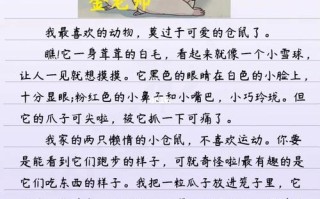 金老师
我最喜欢的动物，莫过于可爱的仓鼠了。
瞧!它一身茸茸的白毛，看起来就像一个小雪球，
让人一见就想摸摸。它黑色的眼睛在白色的小脸上，
十分显眼;粉红色的小鼻子和小嘴巴，小巧玲珑。但
它的爪子可尖啦，被它抓一下可痛了。
我家的两只懒惰的小仓鼠，不喜欢运动。你要
是能看到它们跑步的样子，可就奇怪啦!最有趣的是
它们吃东西的样子。我把一粒瓜子放进笼子里，它